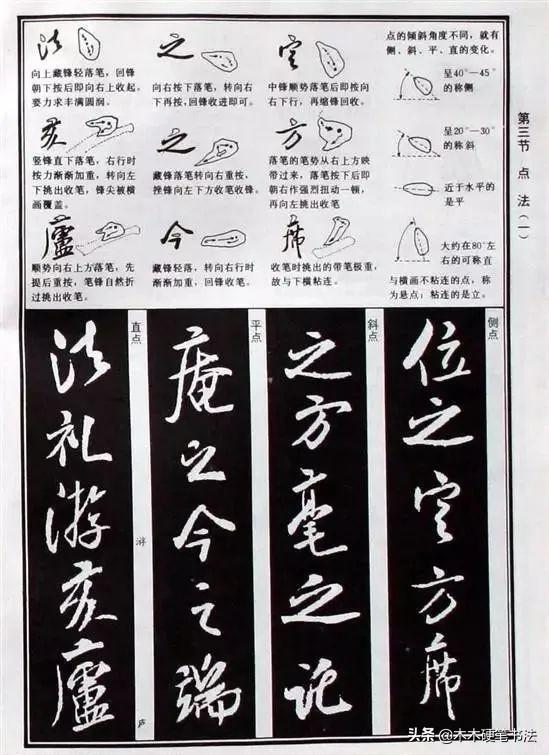 第三节 点法(一)
点的倾斜角度不同,就有
侧、斜、平、直的变化。
呈40°—45°
的称侧
呈20°—30°
的称斜
近于水平的
是平
大约在80°左
右的可称直
与横画不粘连的点,称
为悬点;粘连的是立。
定
中锋顺势落笔后即按向
右下行,再缩锋回收。
方
落笔的笔势从右上方映
带过来,落笔按下后即
朝右作强烈扭动一顿,
再向左挑出收笔
席
收笔时挑出的带笔极重,
故与下横粘连。
之
向右按下落笔,转向右
下再按,回锋收进即可。
之
藏锋落笔转向右重按,
挫锋向左下方收笔收锋。
今
藏锋轻落,转向右行时
渐渐加重,回锋收笔。
法
向上藏锋轻落笔,回锋
朝下按后即向右上收起。
要力求丰满圆润。
亥
竖锋直下落笔,右行时
按力渐渐加重,转向左
下挑出收笔,锋尖被横
画覆盖。
廬
顺势向右上方落笔,先
提后重按,笔锋自然折
过挑出收笔。
侧点
位之定方席
斜点
之方毫之託
平点
庵之今之端
直点
法礼游亥廬
游
庐
头条 @木木硬笔书法